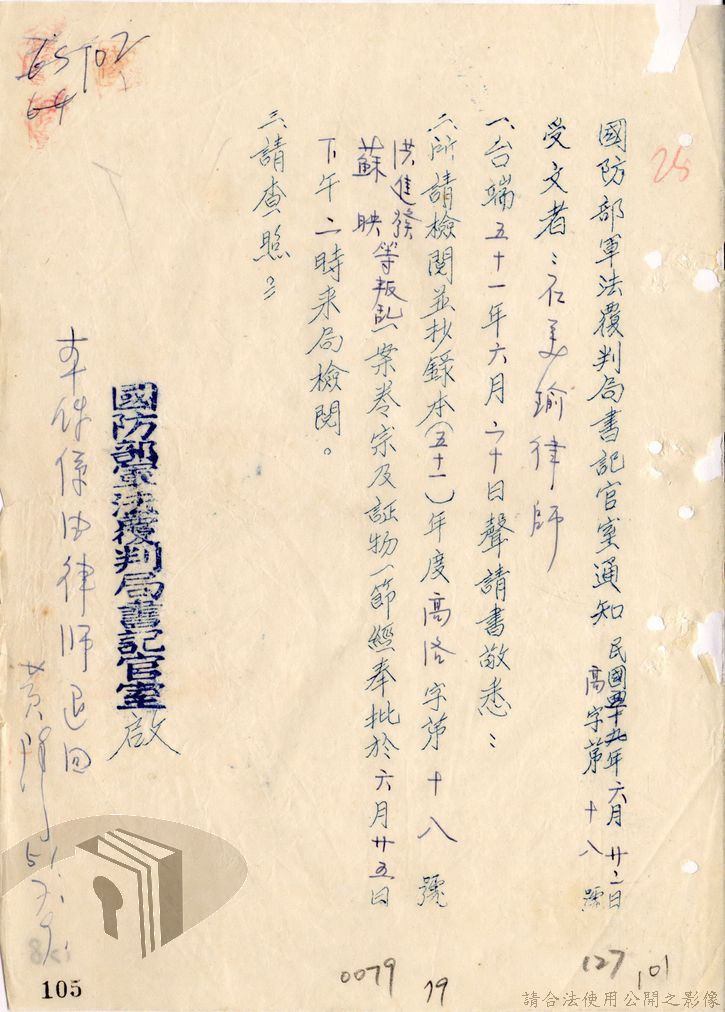 國防部軍法覆判局書記官室通知
民國五十九年六月廿二日
高字第十八號
受文者：石美瑜律師
一、台端五十一年六月二十日聲請書敬悉：
二、所請檢閱並抄錄本（五十一）年度高洛字第十八號
洪進發
蘇映等叛乱一案卷宗及証物一節經奉批於六月廿五日
下午二時来局檢閱。
三、請查照。
國防部軍法覆判局書記官室 啟
本件係由律師退回
25
0079
19
127
101
105
請合法使用公開之影像